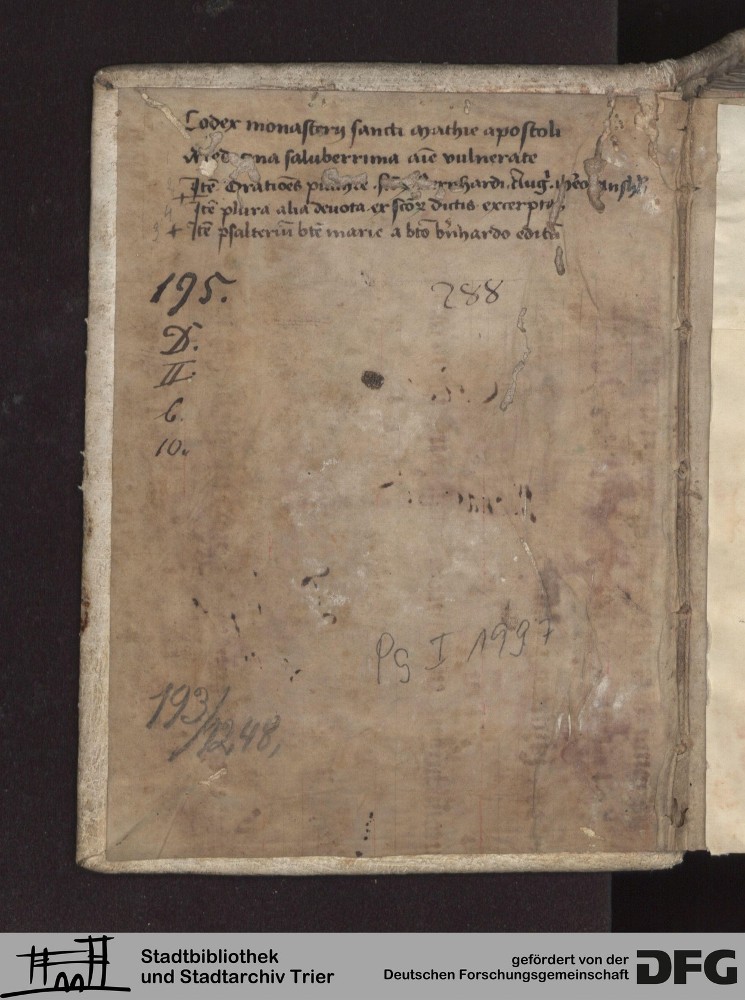 Codex monasterij sancti Mathie apostoli
saluberrima aīe vulnerate
Itē Orationes Aug.
Itē plura alia deuota ex dictis excerpta
+ Itē psalteriū btē marie a btō brnhardo editū
195.
288
D.
II.
6.
10.
PS I 1997
193/
1248,
Stadtbibliothek
und Stadtarchiv Trier
gefördert von der
Deutschen Forschungsgemeinschaft
DFG